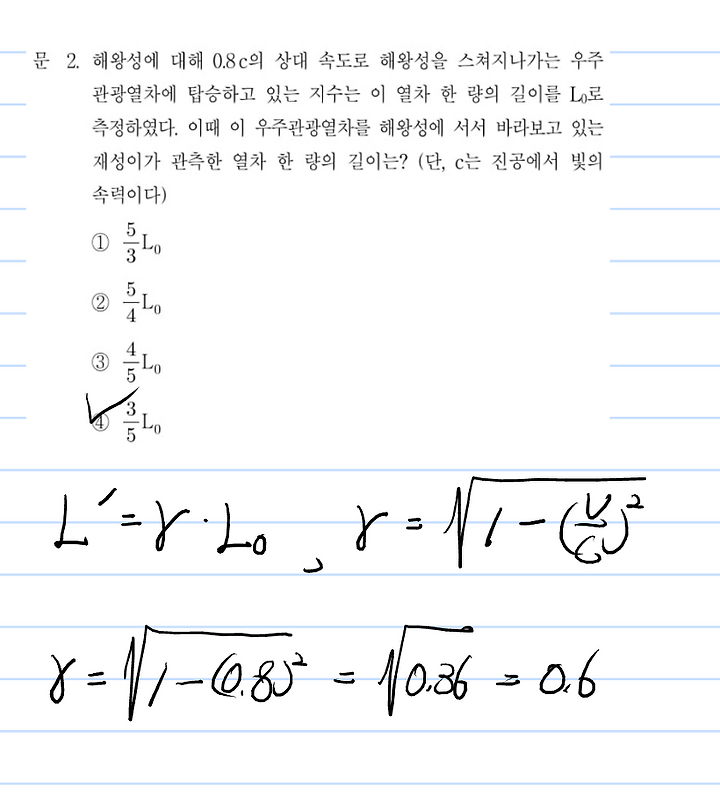 문 2. 해왕성에 대해 0.8c의 상대 속도로 해왕성을 스쳐지나가는 우주
관광열차에 탑승하고 있는 지수는 이 열차 한 량의 길이를 L₀로
측정하였다. 이때 이 우주관광열차를 해왕성에 서서 바라보고 있는
재성이가 관측한 열차 한 량의 길이는? (단, c는 진공에서 빛의
속력이다)
① 5/3 L₀
② 5/4 L₀
③ 4/5 L₀
④ 3/5 L₀
L′ = γ · L₀ , γ = √(1 − (v/c)²)
γ = √(1 − (0.8)²) = √0.36 = 0.6